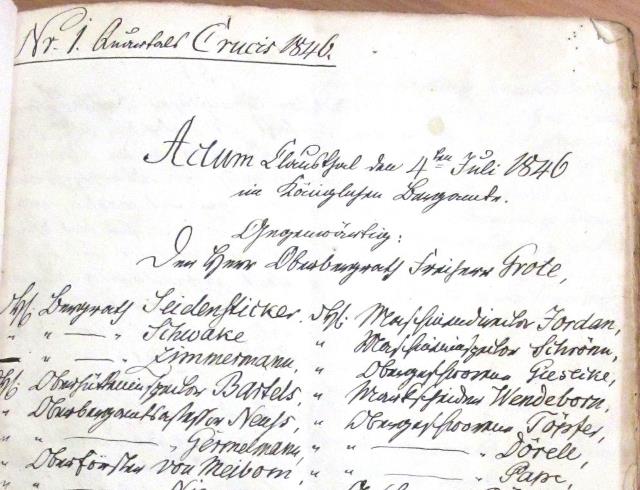 Nr. 1. Quartals Crucis 1846.
Actum Clausthal den 4ten Juli 1846
im Königlichen Bergamte.
Gegenwärtig:
Der Herr Oberbergrath Freiherr Grote,
Bergrath Seidensticker, Maschinendirector Jordan,
" — " Schwake " Maschineninspector Schrönn,
" — " Zimmermann, " Obergeschworner Giesecke,
Oberhütteninspector Bartels, " Markscheider Wendeborn,
" Oberbergamtsassessor Neuss, " Obergeschworner Töpfer,
" — " Germelmann, " — " Dörell,
" Oberförster von Meibom, " — " Pape,